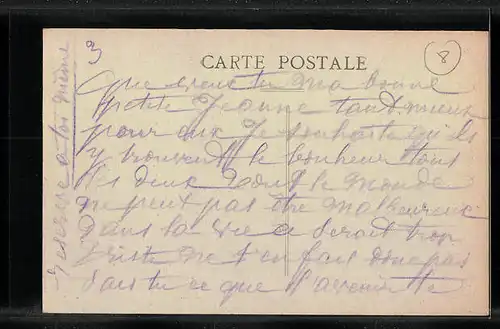 3
8
CARTE POSTALE
Que veux tu ma bonne
petite Jeanne tant mieux
pour eux Je souhaite qu'ils
y trouvent le bonheur tous
les deux tout le monde
ne peut pas être malheureux
dans la vie a serait trop
triste ne t'en fait donc pas
sais tu ce que l'avenir te